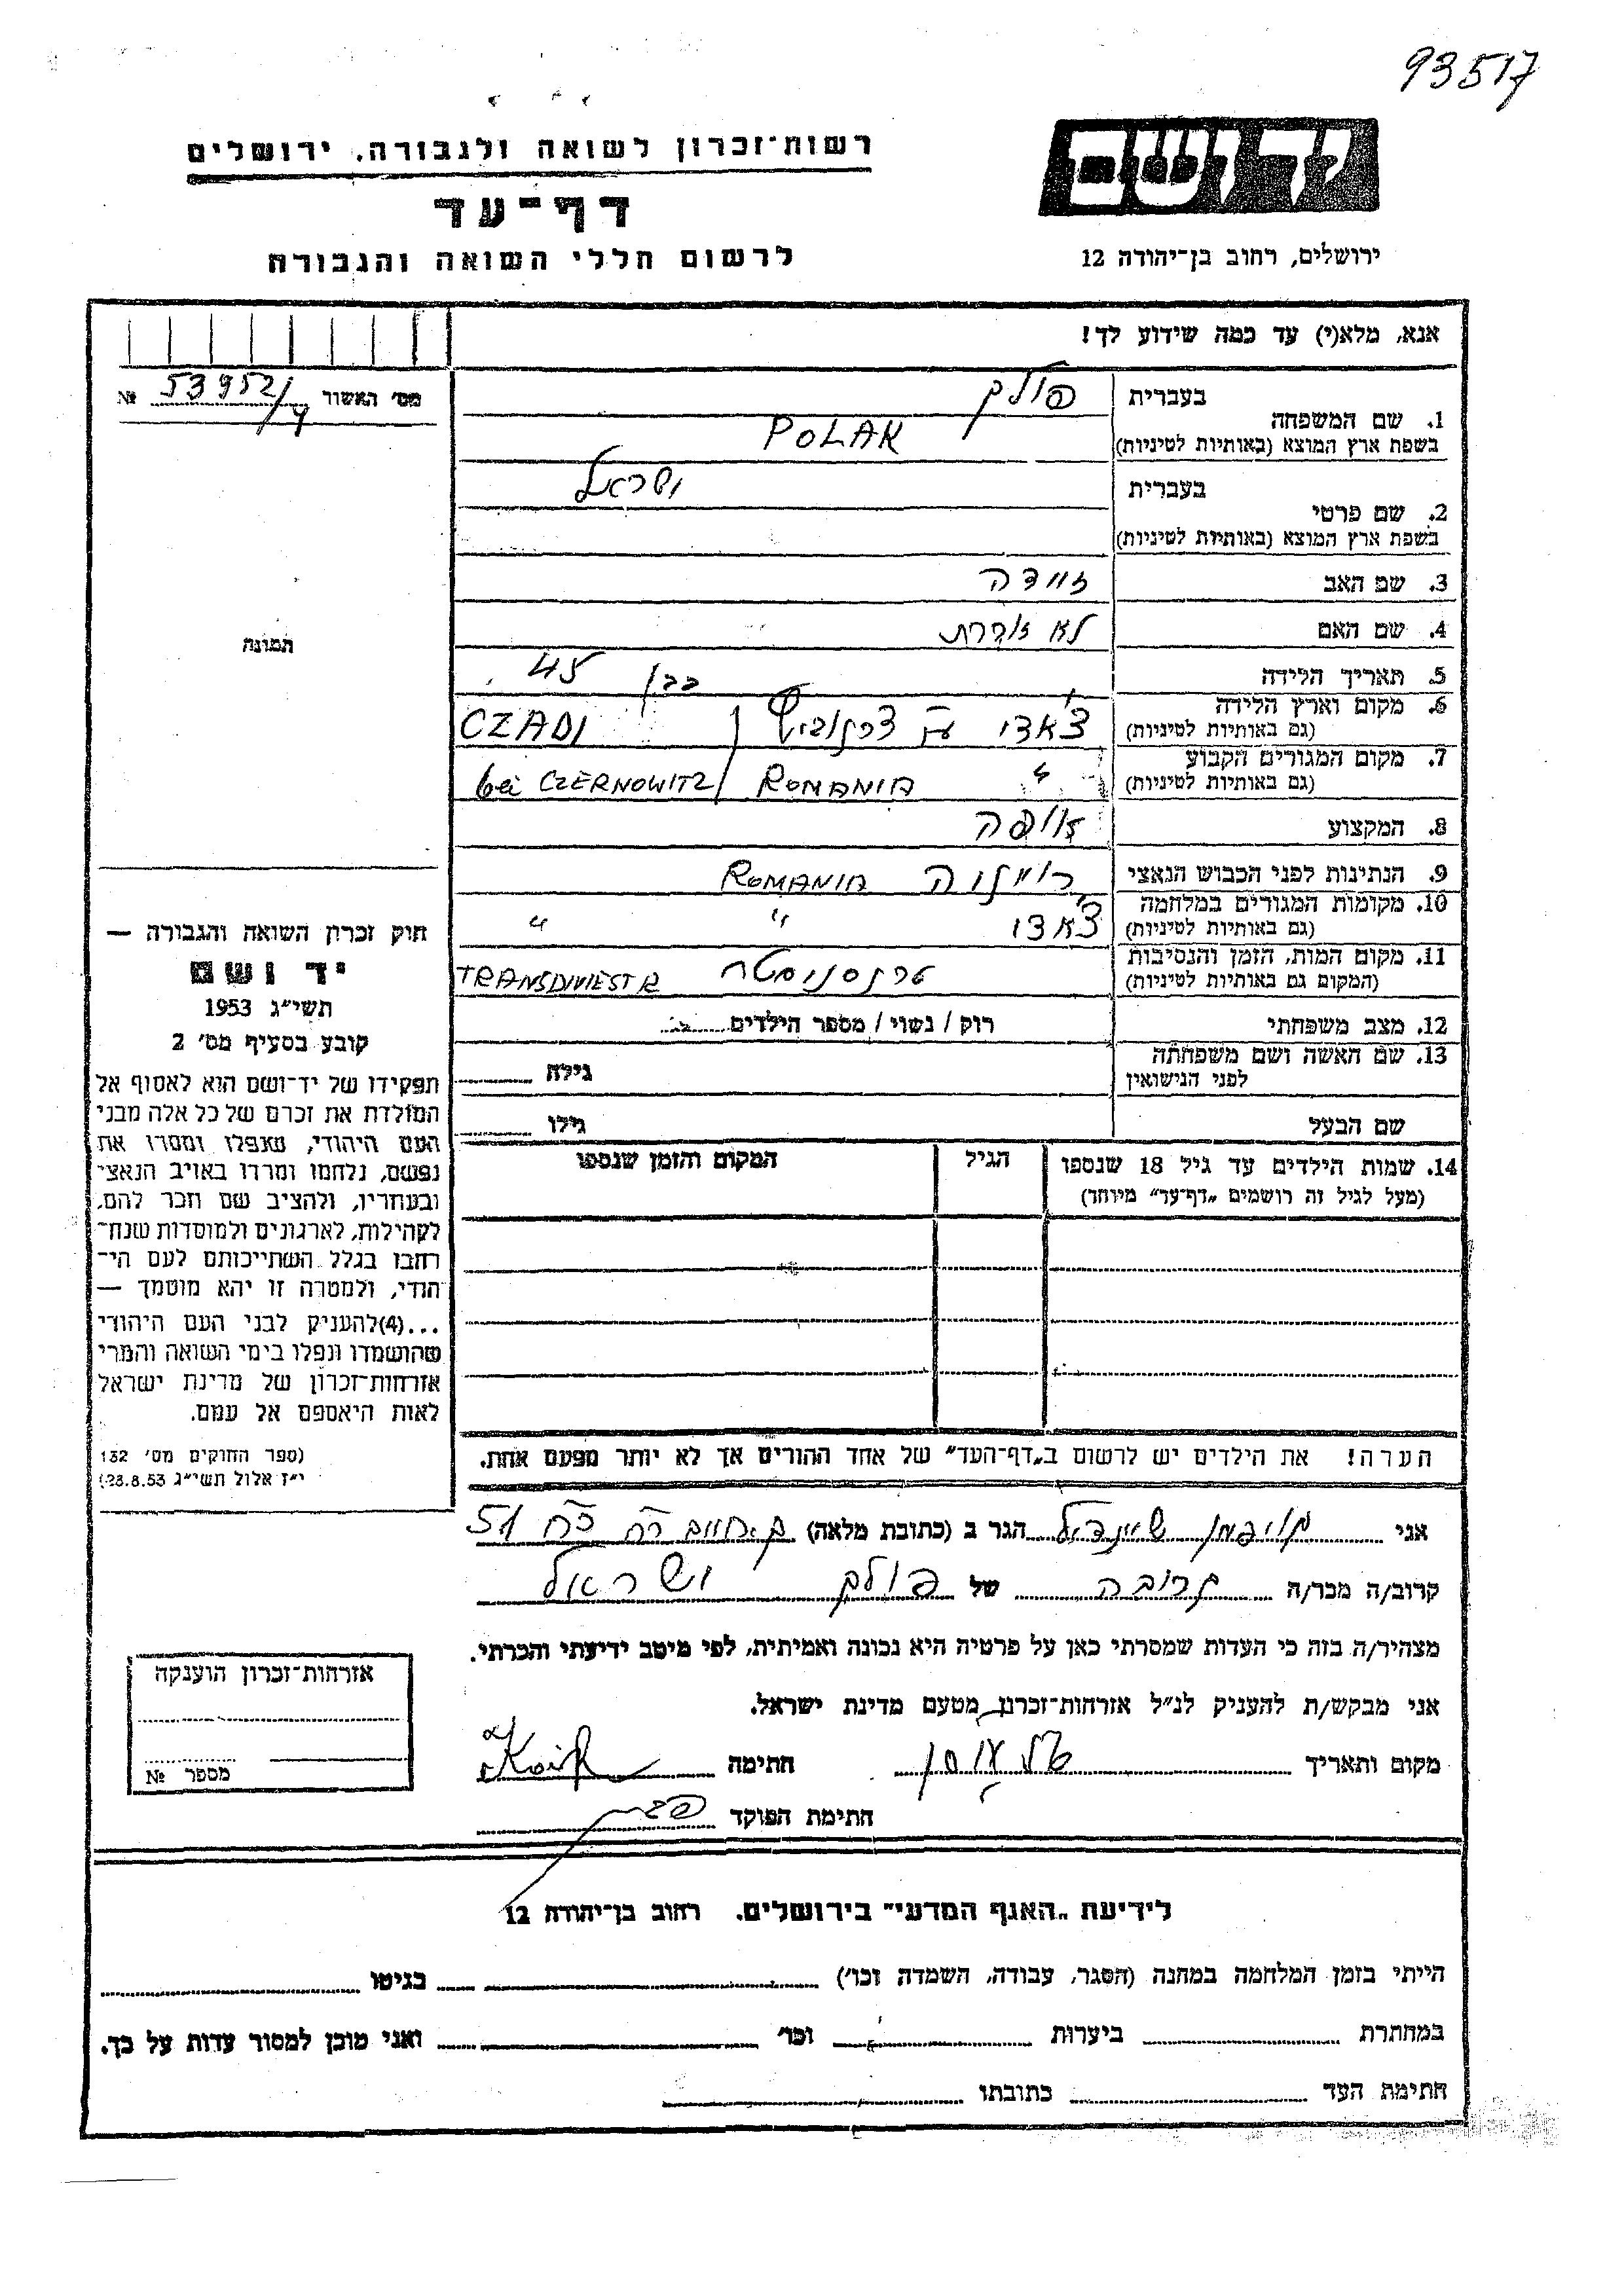 93517
יד ושם
רשות־זכרון לשואה ולגבורה, ירושלים
דף־עד
לרשום חללי השואה והגבורה
ירושלים, רחוב בן־יהודה 12
אנא, מלא(י) עד כמה שידוע לך!
מס׳ האשור 53952/4 №
1. שם המשפחה
בעברית פולק
בשפת ארץ המוצא (באותיות לטיניות) POLAK
2. שם פרטי
בעברית ישראל
בשפת ארץ המוצא (באותיות לטיניות)
3. שם האב
4. שם האם לא זוכרת
5. תאריך הלידה בבן 45
6. מקום וארץ הלידה
(גם באותיות לטיניות) צ׳אדי ע״י צ׳רנוביץ CZADI
7. מקום המגורים הקבוע
(גם באותיות לטיניות) " ROMANIA / bei CZERNOWITZ
8. המקצוע אופה
9. הנתינות לפני הכבוש הנאצי רומניה ROMANIA
10. מקומות המגורים במלחמה
(גם באותיות לטיניות) צ׳אדי " "
11. מקום המות, הזמן והנסיבות
(המקום גם באותיות לטיניות) טרנסניסטרה TRANSDNIESTR
12. מצב משפחתי רוק / נשוי / מספר הילדים
13. שם האשה ושם משפחתה
לפני הנישואין גילה
שם הבעל גילו
14. שמות הילדים עד גיל 18 שנספו
(מעל לגיל זה רושמים „דף־עד” מיוחד)
הגיל
המקום והזמן שנספו
הערה! את הילדים יש לרשום ב„דף־העד” של אחד ההורים אך לא יותר מפעם אחת.
התמונה
חוק זכרון השואה והגבורה —
יד ושם
תשי״ג 1953
קובע בסעיף מס׳ 2
תפקידו של יד־ושם הוא לאסוף אל
המולדת את זכרם של כל אלה מבני
העם היהודי, שנפלו ומסרו את
נפשם, נלחמו ומרדו באויב הנאצי
ובעוזריו, ולהציב שם וזכר להם,
לקהילות, לארגונים ולמוסדות שנח־
רבו בגלל השתייכותם לעם הי־
הודי, ולמטרה זו יהא מוסמך —
...(4)להעניק לבני העם היהודי
שהושמדו ונפלו בימי השואה והמרי
אזרחות־זכרון של מדינת ישראל
לאות היאספם אל עמם.
(ספר החוקים מס׳ 132
י״ז אלול תשי״ג 28.8.53)
אני קויפמן שיינדל הגר ב (כתובת מלאה) 51
קרוב/ה מכר/ה קרובה של פולק ישראל
מצהיר/ה בזה כי העדות שמסרתי כאן על פרטיה היא נכונה ואמיתית, לפי מיטב ידיעתי והכרתי.
אני מבקש/ת להעניק לנ״ל אזרחות־זכרון מטעם מדינת ישראל.
מקום ותאריך חתימה
חתימת הפוקד
אזרחות־זכרון הוענקה
מספר №
לידיעת „האגף המדעי” בירושלים. רחוב בן־יהודה 12
הייתי בזמן המלחמה במחנה (הסגר, עבודה, השמדה וכו׳) בגיטו
במחתרת ביערות וכו׳ ואני מוכן למסור עדות על כך.
חתימת העד כתובתו